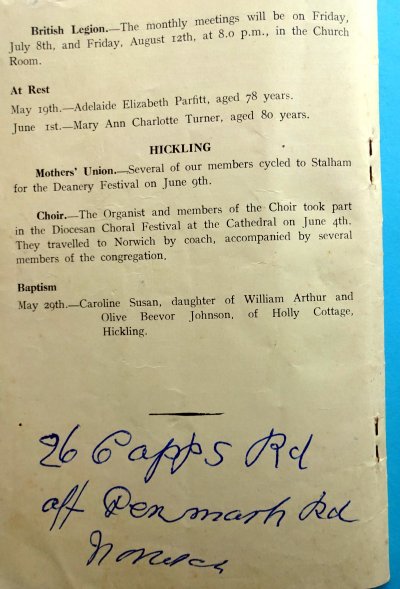 British Legion.—The monthly meetings will be on Friday,
July 8th, and Friday, August 12th, at 8.0 p.m., in the Church
Room.
At Rest
May 19th.—Adelaide Elizabeth Parfitt, aged 78 years.
June 1st.—Mary Ann Charlotte Turner, aged 80 years.
HICKLING
Mothers' Union.—Several of our members cycled to Stalham
for the Deanery Festival on June 9th.
Choir.—The Organist and members of the Choir took part
in the Diocesan Choral Festival at the Cathedral on June 4th.
They travelled to Norwich by coach, accompanied by several
members of the congregation.
Baptism
May 29th.—Caroline Susan, daughter of William Arthur and
Olive Beevor Johnson, of Holly Cottage,
Hickling.
26 Capps Rd
off Denmark Rd
Norwich